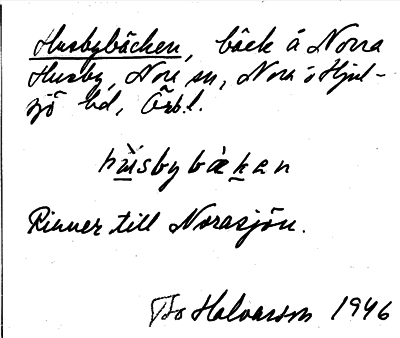 Husbybäcken, bäck å Norra
Husby, Nora sn, Nora o Hjul-
sjö bd, Örb. l.
hùsbybàkan
Rinner till Norasjön.
Bo Halvarson 1946